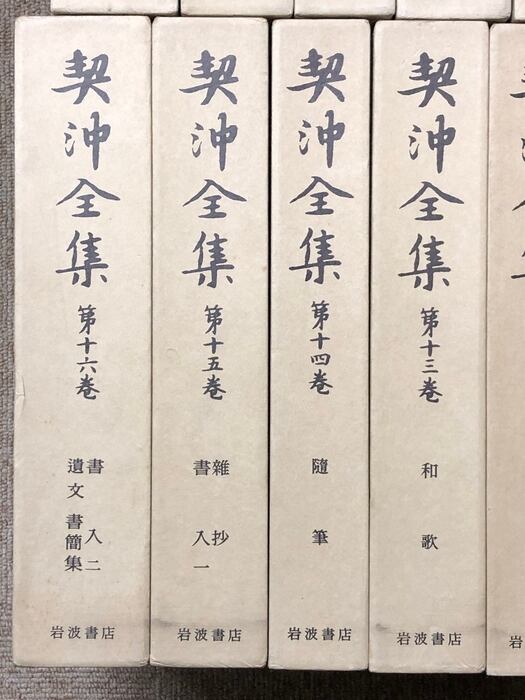 契沖全集
第十三巻
和歌
岩波書店
契沖全集
第十四巻
隨筆
岩波書店
契沖全集
第十五巻
雜抄
書入一
岩波書店
契沖全集
第十六巻
書入二
遺文 書簡集
岩波書店